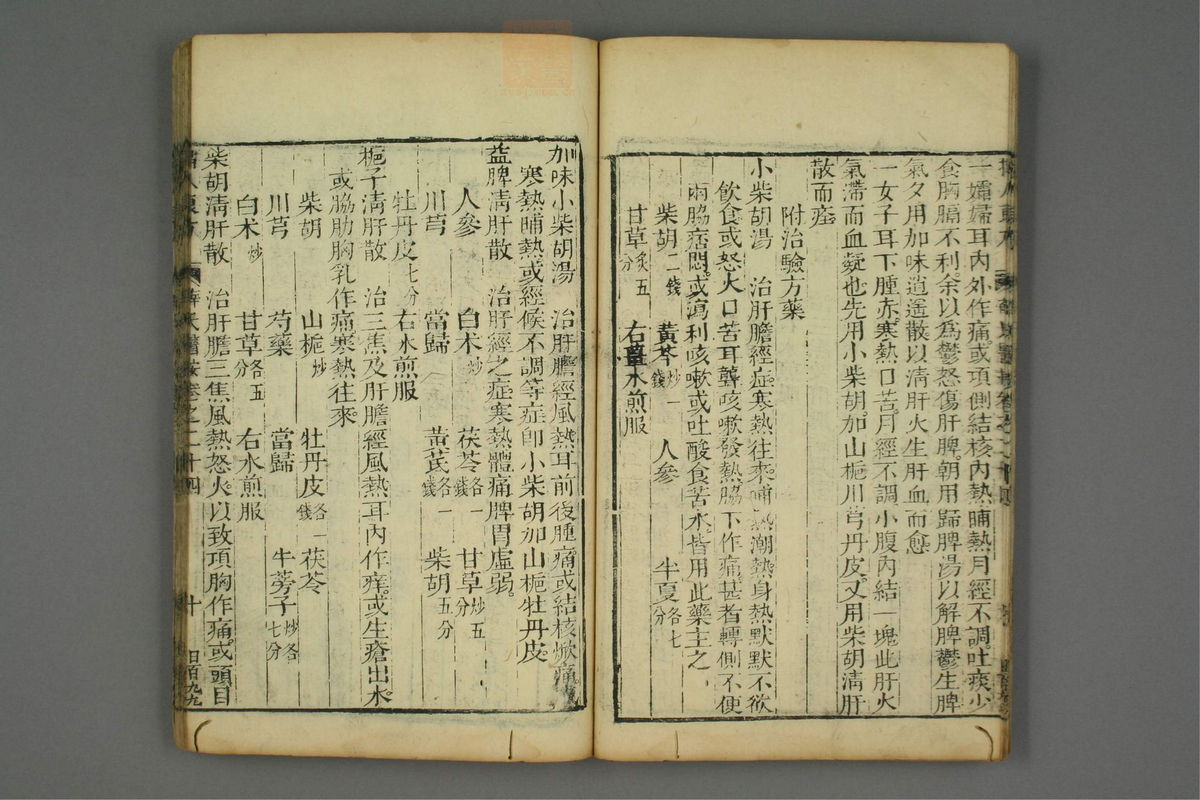 一孀婦耳內外作痛或項側結核內熱晡熱月經不調吐痰少
食胸膈不利余以爲鬱怒傷肝脾朝用歸脾湯以解脾鬱生脾
氣夕用加味逍遥散以清肝火生肝血而愈
一女子耳下腫赤寒熱口苦月經不調小腹內結一塊此肝火
氣滯而血凝也先用小柴胡加山梔川芎丹皮又用柴胡清肝
散而痊
附治驗方藥
小柴胡湯 治肝膽經症寒熱往來晡熱潮熱身熱默默不欲
飲食或怒火口苦耳聾咳嗽發熱脇下作痛甚者轉側不便
兩脇痞悶或瀉利咳嗽或吐酸食苦水皆用此藥主之
柴胡二錢 黃芩炒一錢 人參 半夏各七分
甘草炙五分 右薑水煎服
加味小柴胡湯 治肝膽經風熱耳前後腫痛或結核焮痛
寒熱晡熱或經候不調等症卽小柴胡加山梔牡丹皮
益脾清肝散 治肝經之症寒熱體痛脾胃虛弱
人參 白朮炒 茯苓各一錢 甘草炒五分
川芎 當歸 黃芪各一錢 柴胡五分
牡丹皮七分 右水煎服
梔子清肝散 治三焦及肝膽經風熱耳內作癢或生瘡出水
或脇肋胸乳作痛寒熱往來
柴胡 山梔炒 牡丹皮各一錢 茯苓
川芎 芍藥 當歸 牛蒡子炒各七分
白朮炒 甘草各五分 右水煎服
柴胡清肝散 治肝膽三焦風熱怒火以致項胸作痛或頭目
婦人良方 薛氏醫按卷之二十四 十